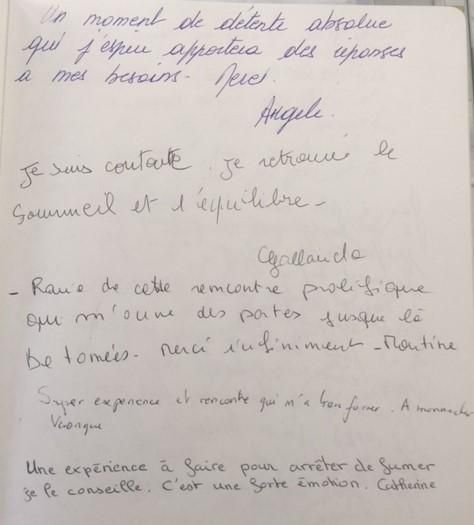 Un moment de détente absolue
qui j'espère apportera des réponses
à mes besoins. Merci.
Angele.
Je suis contente. Je retrouve le
Sommeil et l'équilibre -
- Ravie de cette rencontre prolifique
qui m'ouvre des portes jusque là
. Merci infiniment - Martine
Super experience et rencontre qui m'a transformer. A
Veronique
Une expérience à faire pour arrêter de fumer
je le conseille. C'est une forte émotion. Catherine